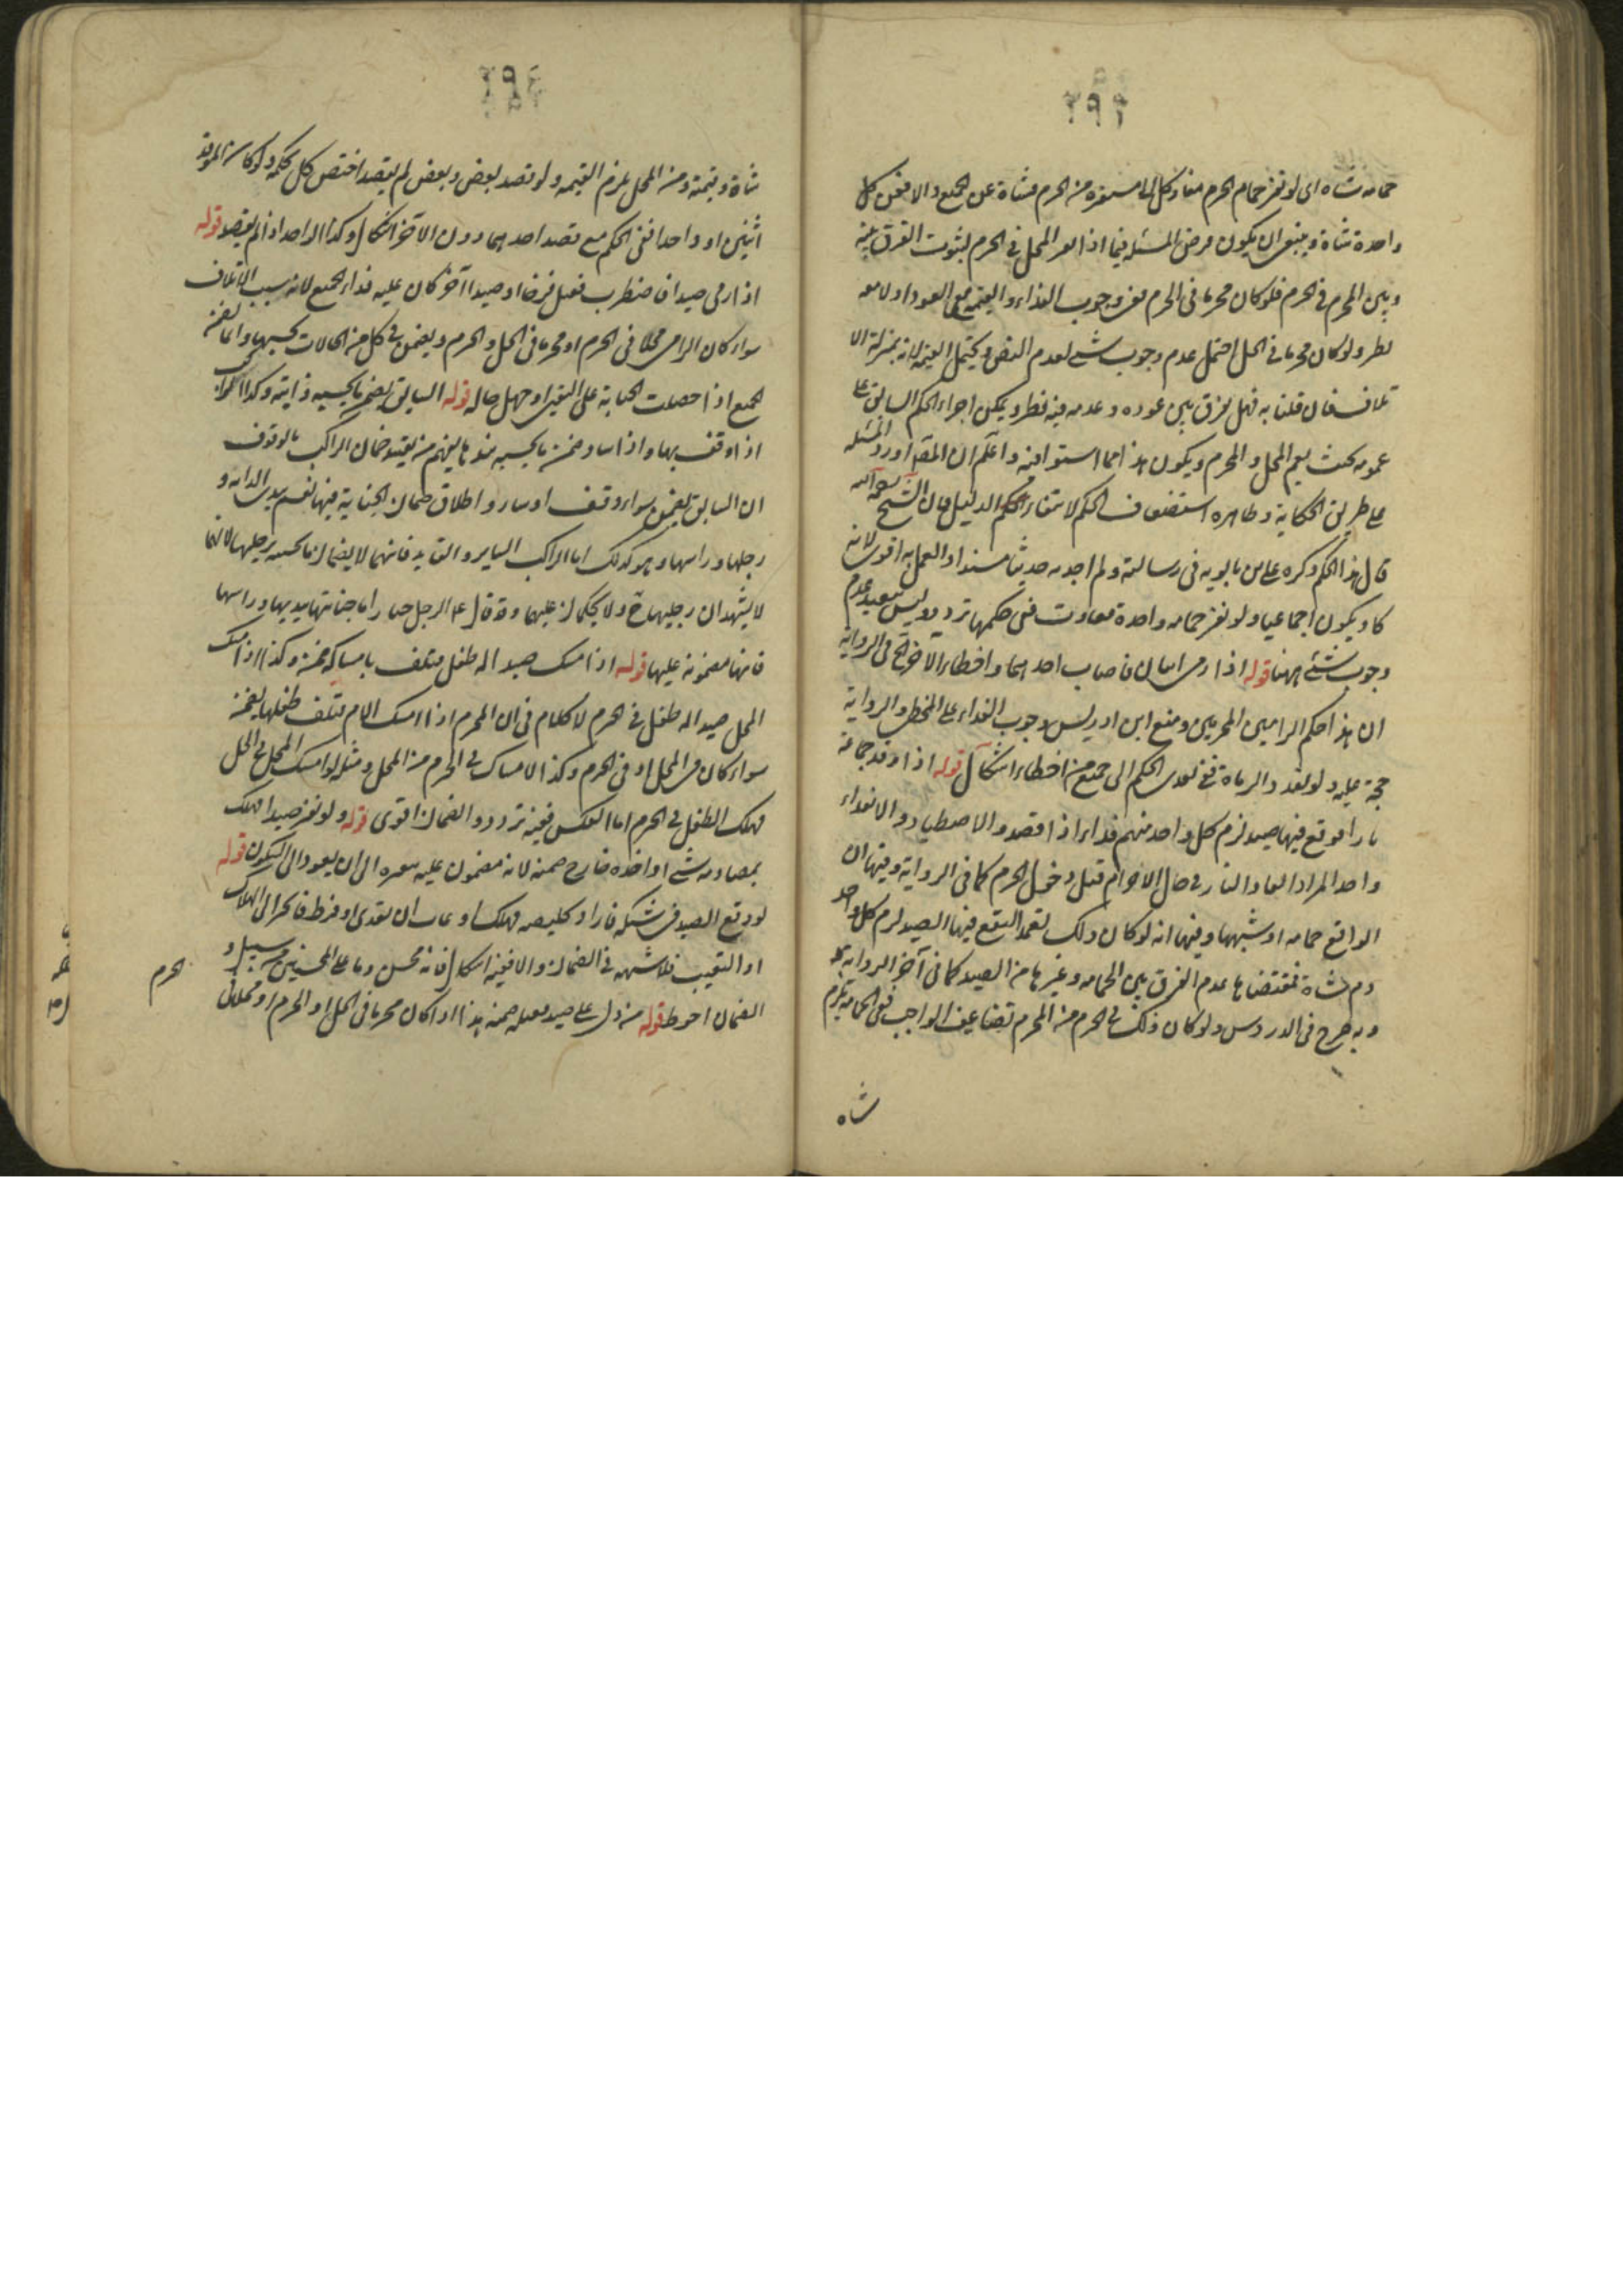 ٢٩٣
حمامه شاه اى لو نفر حمام الحرم فعاد كل الى مستقره من الحرم فشاة عن الجميع والا فعن كل
واحدة شاة وينبغى ان يكون فرض المسئلة فيما اذا نفر المحل فى الحرم لثبوت الفرق بينه
وبين المحرم فى الحرم فلو كان محرما فى الحرم ففى وجوب الفداء والقيمة مع العود اولا معه
نظر ولو كان محرما فى الحل احتمل عدم وجوب شىء لعدم النص ويحتمل القيمة لانه بمنزلة الا
تلاف فان قلنا به فهل يفرق بين عوده وعدمه فيه نظر ويمكن اجراء الحكم السابق على
عمومه بحيث يعم المحل والمحرم ويكون هذا مما استويا فيه واعلم ان المص اورد المسئله
على طريق الحكاية وظاهره استضعاف الحكم لانتفاء الدليل فان الشيخ رحمه الله
قال هذا الحكم ذكره على بن بابويه فى رسالته ولم اجد به حديثا مسندا والعمل به اقوى لانه
كاد يكون اجماعيا ولو نفر حمامه واحدة فعادت ففى حكمها تردد وليس ببعيد عدم
وجوب شىء ههنا قوله اذا رمى اثنان فاصاب احدهما واخطاء الآخر الخ فى الرواية
ان هذا حكم الراميين المحرمين ومنع ابن ادريس وجوب الفداء على المخطى والرواية
حجة عليه ولو تعدد الرماة ففى تعدى الحكم الى جميع من اخطاء اشكال قوله اذا اوقد جماعة
نارا فوقع فيها صيد لزم كل واحد منهم فداء اذا قصدوا الاصطياد والا ففداء
واحد المراد ايقاد النار فى حال الاحرام قبل دخول الحرم كما فى الرواية وفيها ان
الواقع حمامه او شبهها وفيها انه لو كان ذلك تعمدا ليقع فيها الصيد لزم كل واحد
دم شاة فمقتضاها عدم الفرق بين الحمامه وغيرها من الصيد كما فى آخر الرواية
وبه صرح فى الدروس ولو كان ذلك فى الحرم من المحرم تضاعف الواجب ففى الحمامه يلزم
شاه
٢٩٤
شاة وقيمة ومن المحل يلزم القيمه ولو قصد بعض وبعض لم يقصد اختص كل بحكمه ولو كان الموقد
اثنين او واحدا ففى الحكم مع قصد احدهما دون الآخر اشكال وكذا الواحد اذا لم يقصد قوله
اذا رمى صيدا فاضطرب فقتل فرخا او صيدا آخر كان عليه فداء الجميع لانه سبب الاتلاف
سواء كان الرامى محلا فى الحرم او محرما فى الحل والحرم ويضمن فى كل من الحالات بحسبها وانما يضمن
الجميع اذا حصلت الجناية على اليقين او جهل حاله قوله السايق يضمن ما يجنيه دابته وكذا الراكب
اذا وقف بها واذا سار ضمن ما يجنيه بيديها يفهم من تقييد ضمان الراكب بالوقوف
ان السايق يضمن سواء وقف او سار واطلاق ضمان الجناية فيهما تعم يدى الدابه و
رجلها وراسها وهو كذلك اما الراكب الساير والقايد فانهما لا يضمنان ما يجنيه برجليها لانهما
لا يشهدان رجليها ح ولا يحكمان عليهما وقد قال ع الرجل جبار اما جنايتها بيديها وراسها
فانها مضمونة عليهما قوله اذا امسك صيدا له طفل فتلف بامساكه ضمن وكذا اذا امسك
المحل صيدا له طفل فى الحرم لا كلام فى ان المحرم اذا امسك الام فتلف طفلها يضمنه
سواء كان فى الحل او فى الحرم وكذا الامساك فى الحرم من المحل ومثله لو امسك المحل فى الحل
فهلك الطفل فى الحرم اما العكس ففيه تردد والضمان اقوى قوله ولو نفر صيدا فهلك
بمصادمه شىء او اخذه جارح ضمنه لانه مضمون عليه بنفره الى ان يعود الى السكون قوله
لو وقع الصيد فى شبكه فاراد تخليصه فهلك او عاب ان تعدى او فرط فانجر الى الهلاك
او التعيب فلا شبهه فى الضمان والا ففيه اشكال فانه محسن وما على المحسنين من سبيل و
الضمان احوط قوله من دل على صيد فقتل ضمنه هذا اذا كان محرما فى الحل او الحرم او محلا فى
الحرم